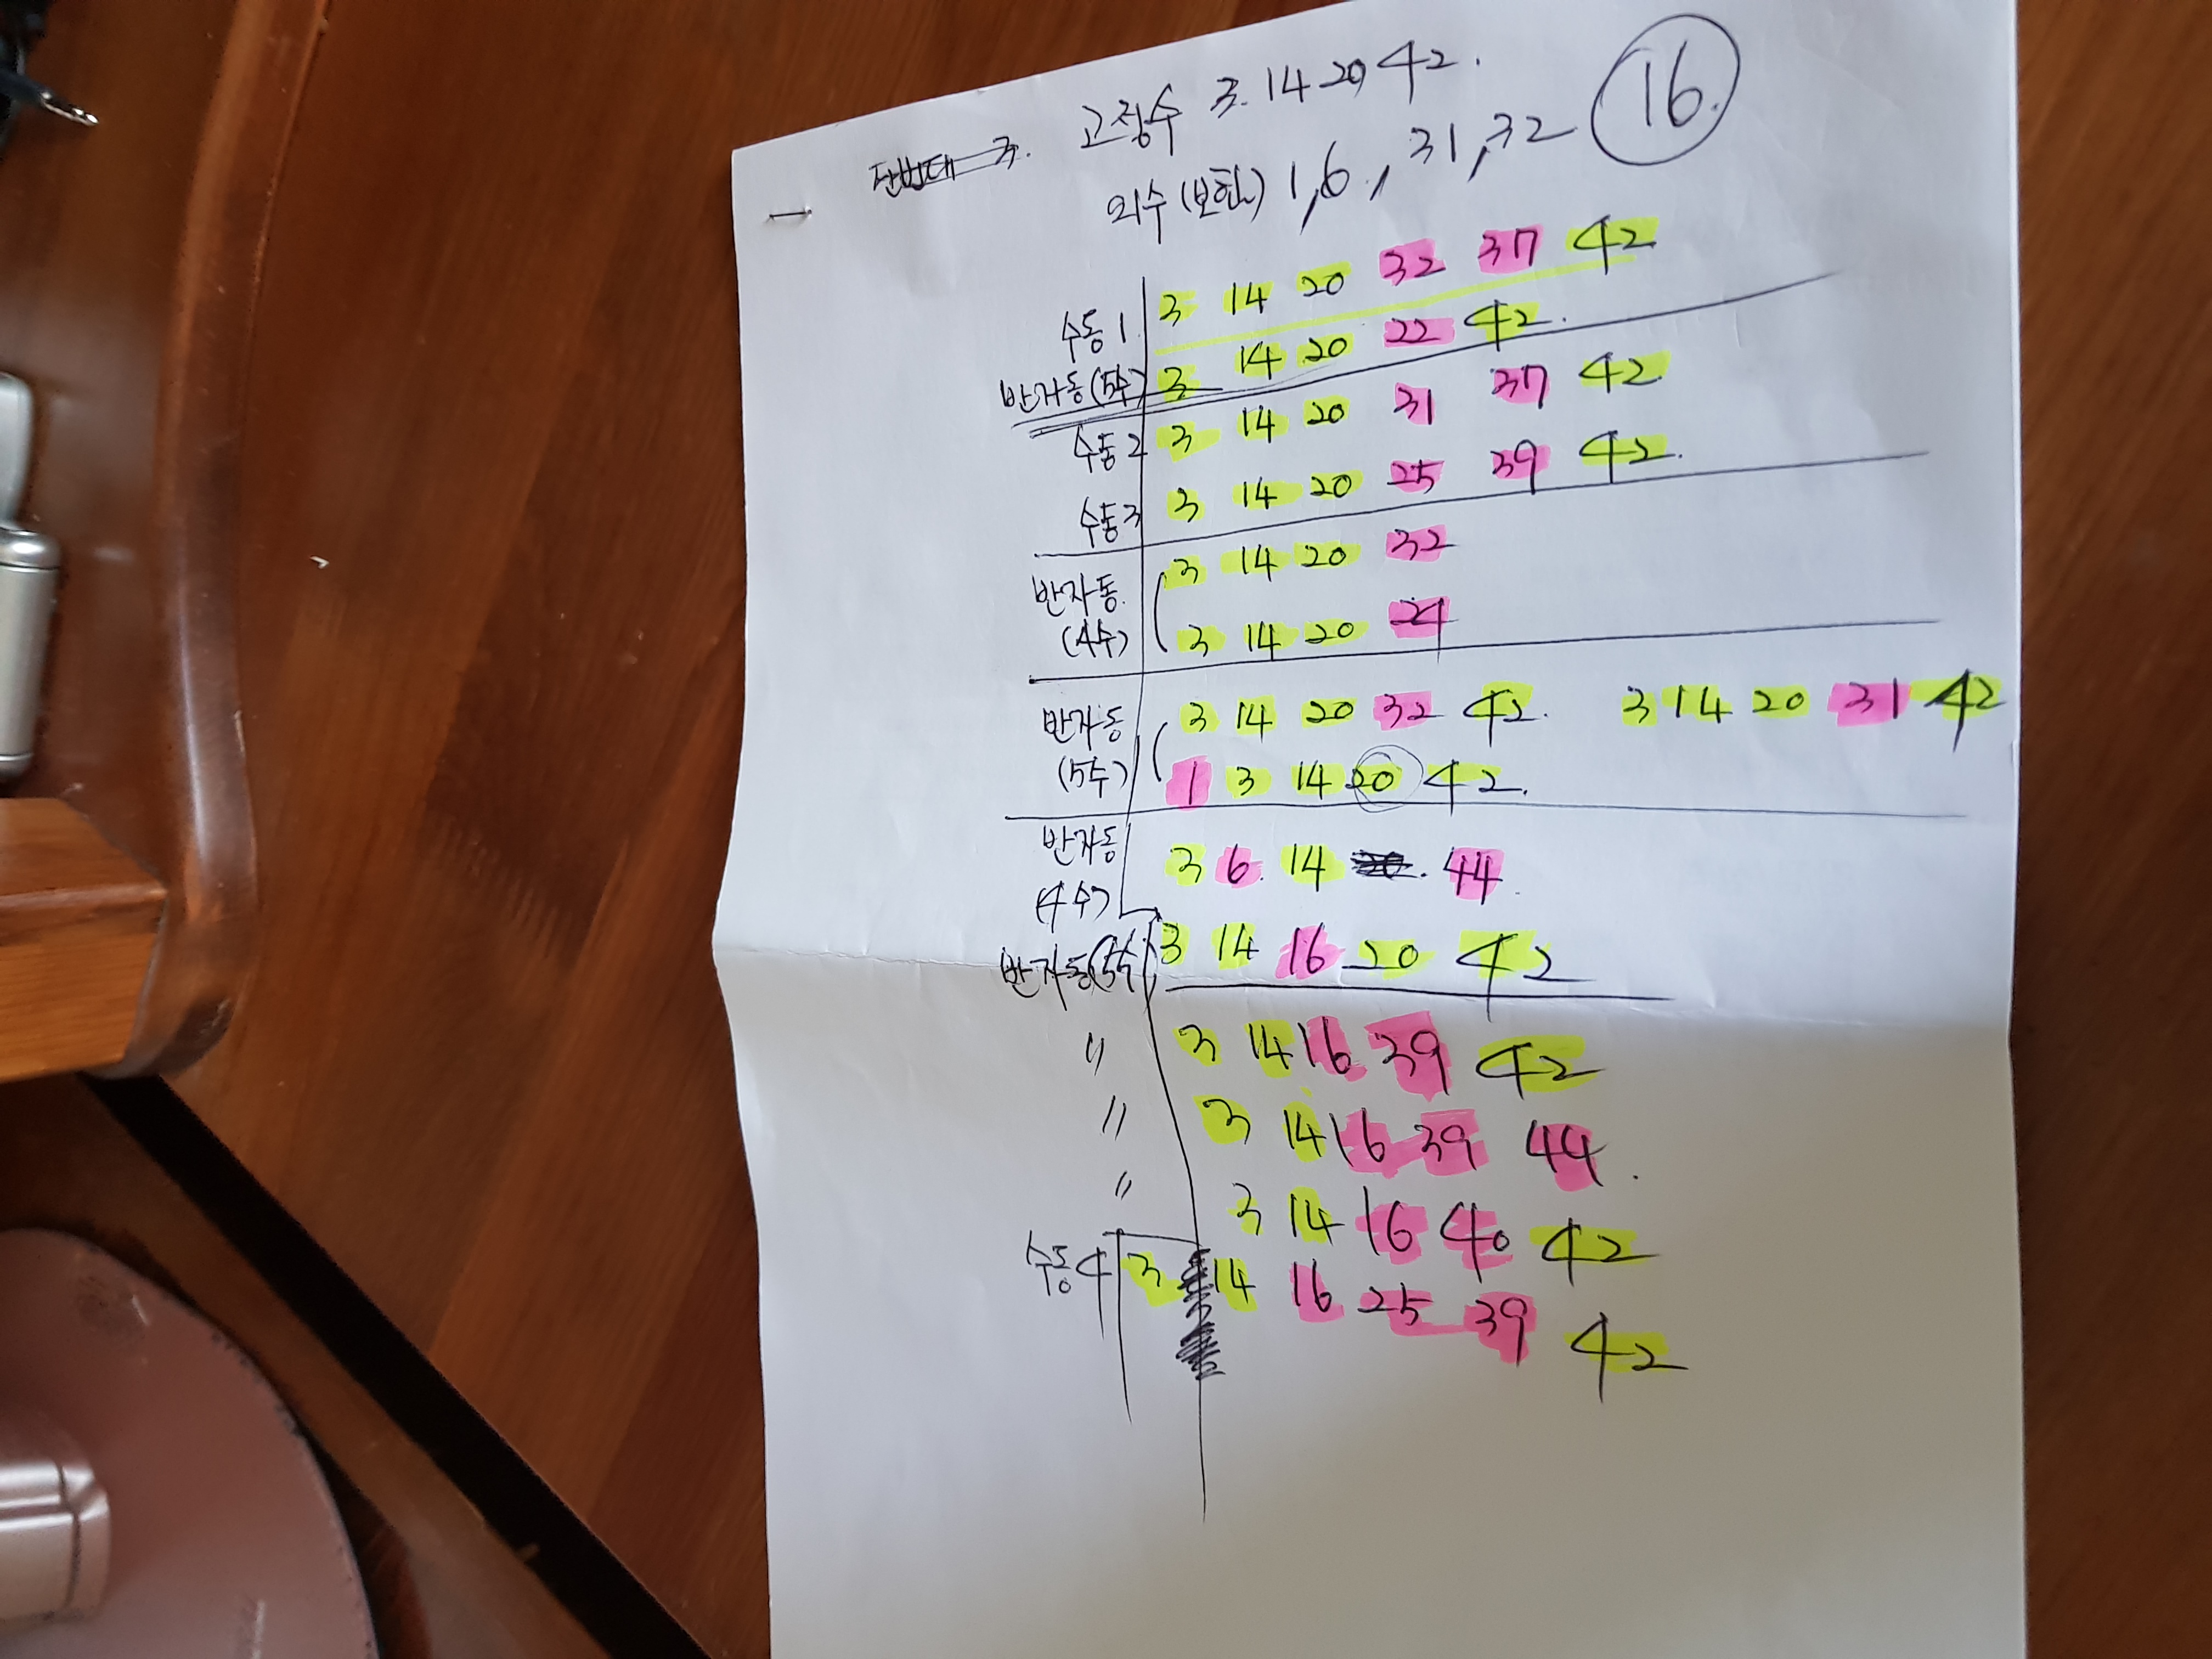 단번대 3. 고정수 3. 14 20 42.
외수 (보험) 1, 6, 31, 32 16.
수동 1 3 14 20 32 37 42
반자동 (5수) 3 14 20 22 42.
수동 2 3 14 20 31 37 42
수동 3 3 14 20 25 39 42.
반자동. 3 14 20 32
(4수) 3 14 20 24
반자동 3 14 20 32 42. 3 14 20 31 42
(5수) 1 3 14 20 42.
반자동 3 6. 14 . 44.
(4수)
반자동(5수) 3 14 16 20 42
〃 3 14 16 39 42
〃 3 14 16 39 44.
〃 3 14 16 40 42
수동 4 3 14 16 25 39 42